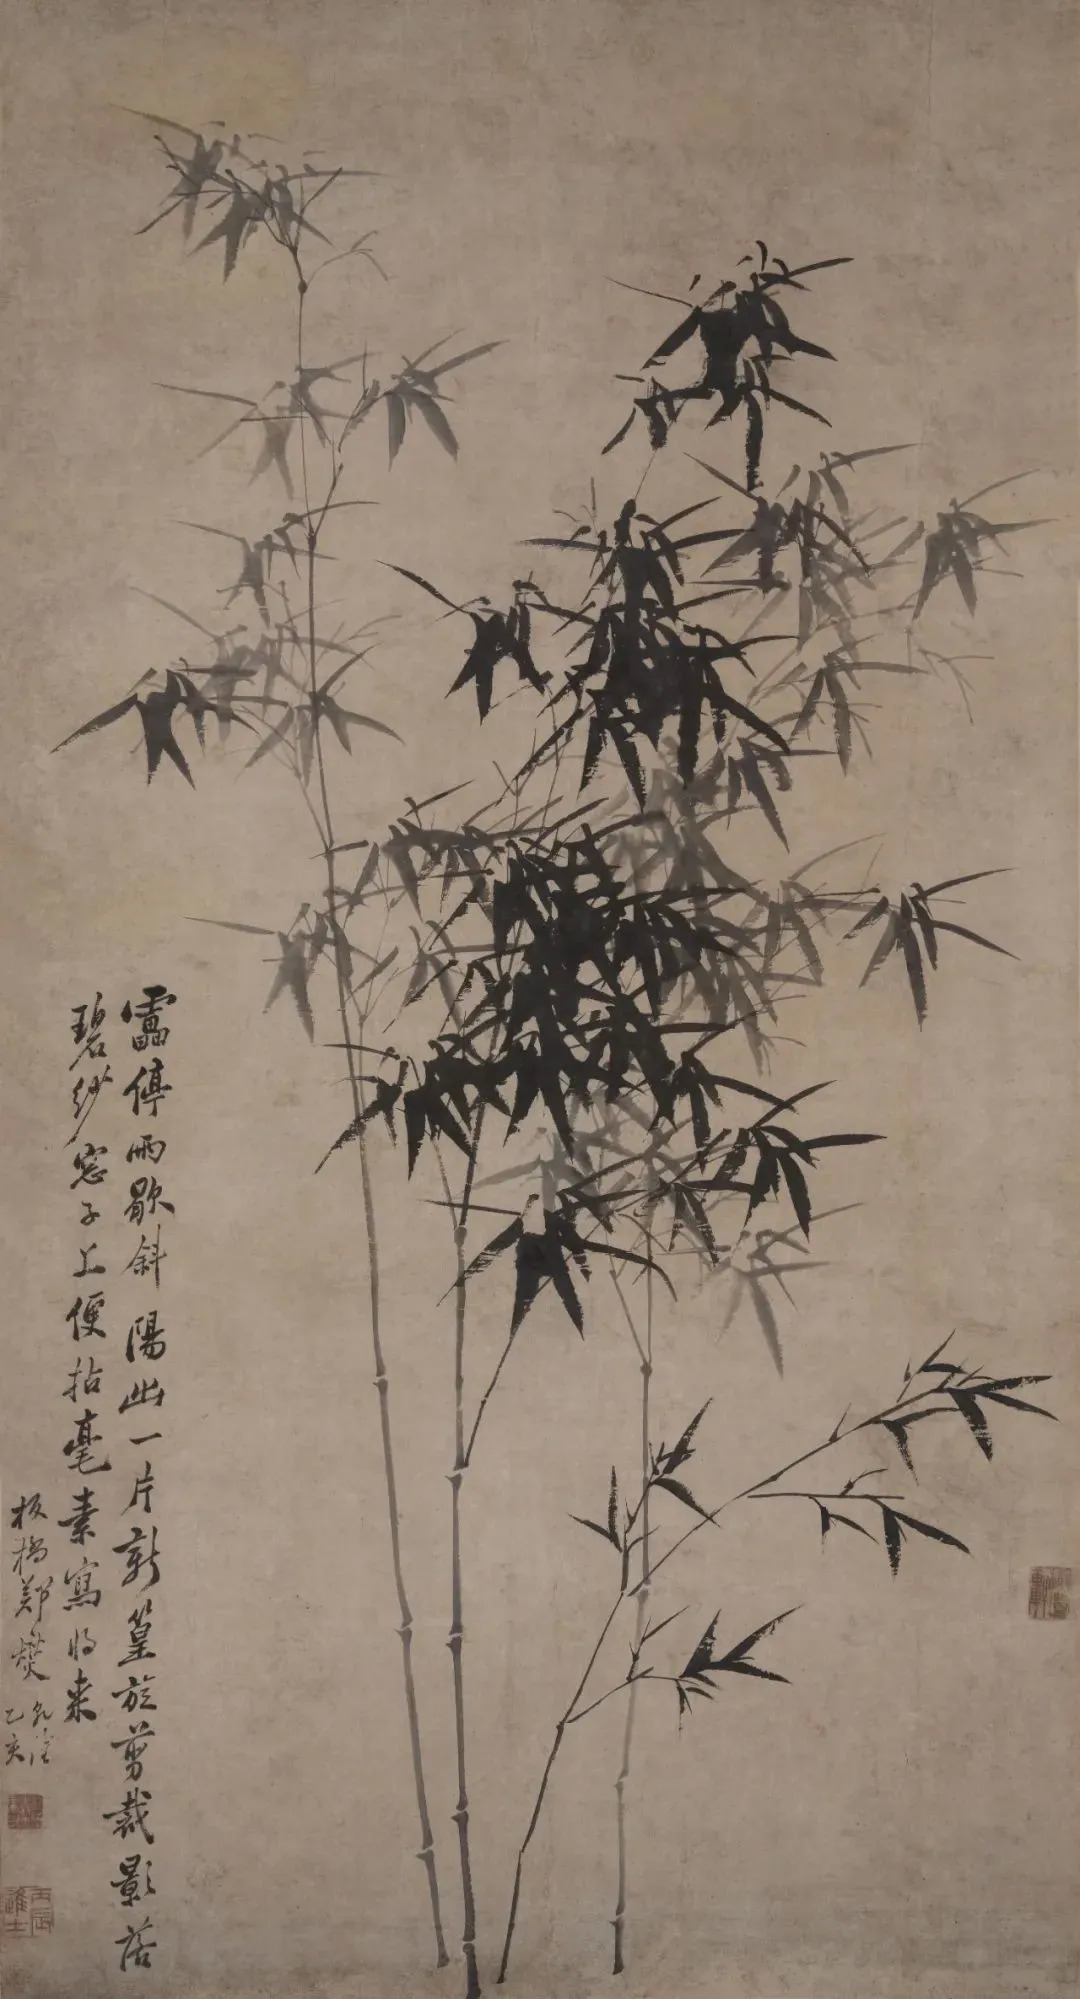 雷停雨歇斜陽出一片新篁旋剪裁影落
碧紗窓子上便拈毫素寫將來
板橋鄭燮
乾隆
乙亥
丙辰進士